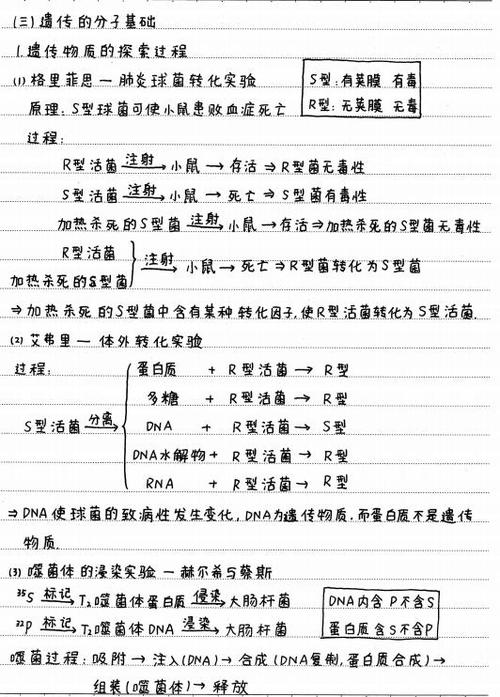 (三)遗传的分子基础
1.遗传物质的探索过程
(1) 格里菲思 — 肺炎球菌转化实验
S型:有荚膜 有毒
R型:无荚膜 无毒
原理:S型球菌可使小鼠患败血症死亡
过程:
R型活菌 注射→ 小鼠 → 存活 ⇒ R型菌无毒性
S型活菌 注射→ 小鼠 → 死亡 ⇒ S型菌有毒性
加热杀死的S型菌 注射→ 小鼠 → 存活 ⇒ 加热杀死的S型菌无毒性
R型活菌
加热杀死的S型菌 } 注射→ 小鼠 → 死亡 ⇒ R型菌转化为S型菌
⇒ 加热杀死的S型菌中含有某种转化因子,使R型活菌转化为S型活菌.
(2) 艾弗里 — 体外转化实验
过程:
S型活菌 分离→ {
蛋白质 + R型活菌 → R型
多糖 + R型活菌 → R型
DNA + R型活菌 → S型
DNA水解物 + R型活菌 → R型
RNA + R型活菌 → R型
⇒ DNA使球菌的致病性发生变化,DNA为遗传物质.而蛋白质不是遗传
物质.
(3) 噬菌体的浸染实验 — 赫尔希与蔡斯
³⁵S 标记→ T₂噬菌体蛋白质 侵染→ 大肠杆菌
³²P 标记→ T₂噬菌体DNA 浸染→ 大肠杆菌
DNA内含P不含S
蛋白质含S不含P
噬菌过程:吸附 → 注入(DNA) → 合成(DNA复制,蛋白质合成) →
组装(噬菌体) → 释放